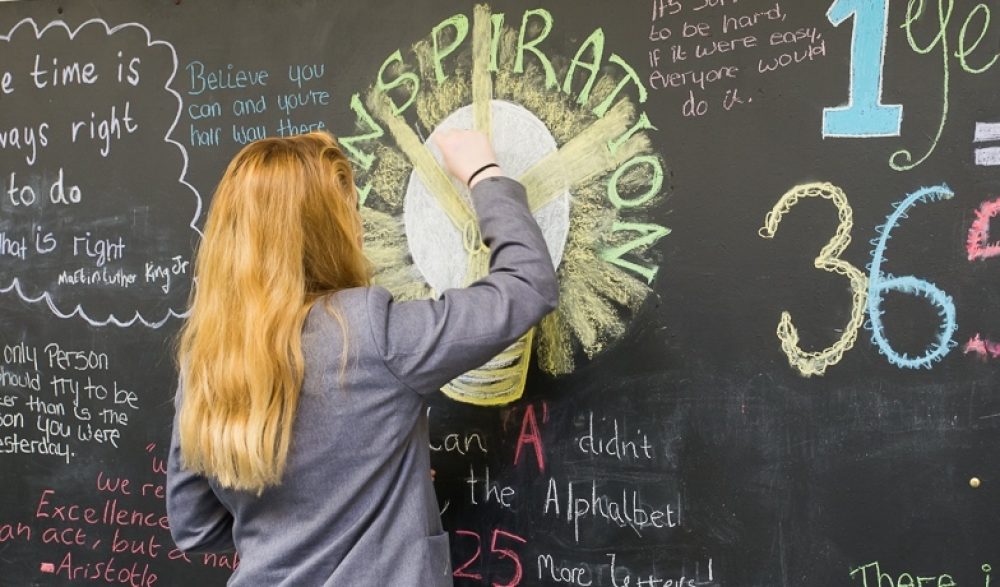 time is
right
to do
is right
Martin Luther King Jr
Believe you
can and you're
half way there
INSPIRATION
to be hard,
if it were easy,
everyone would
do it.
1
36
only Person
should try to be
than is the
you were
yesterday.
We
Excellence
an act, but a
-Aristotle
"A" didn't
the Alphalbet
25 More letters!
There